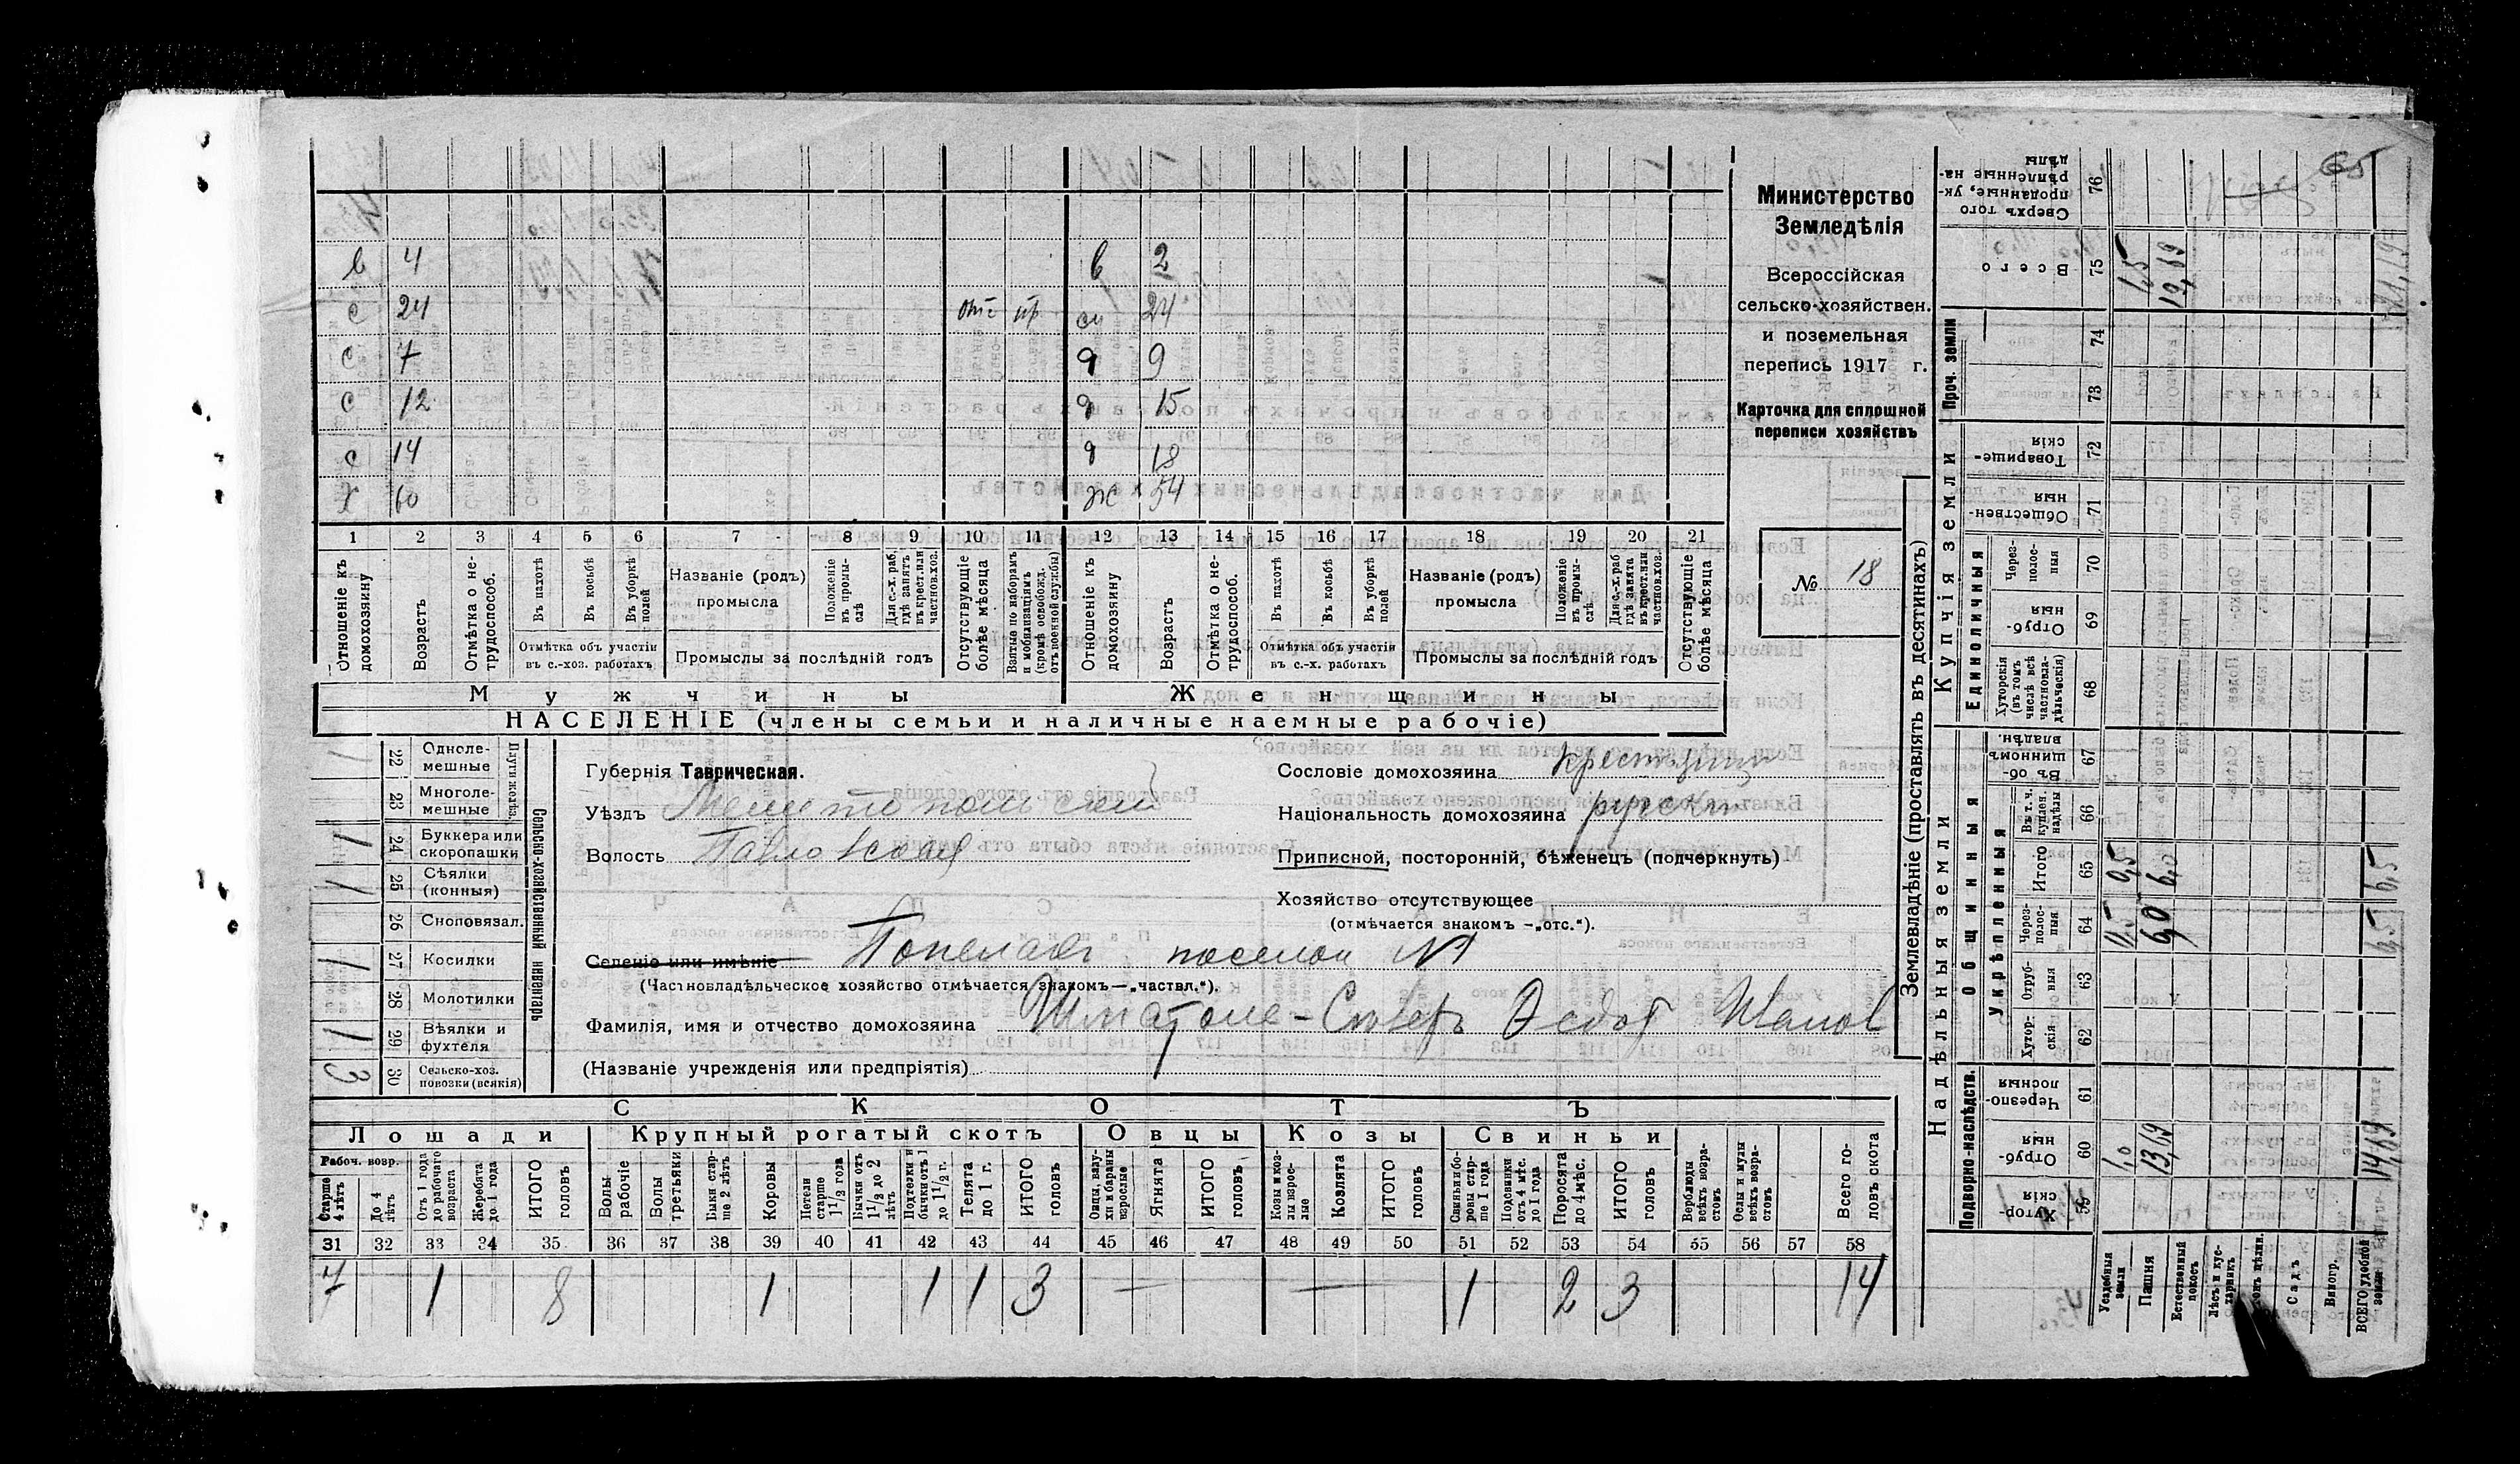 65
Министерство
Земледѣлія
Всероссійская
сельско-хозяйствен.
и поземельная
перепись 1917 г.
Карточка для сплошной
переписи хозяйствъ
№ 18
в 4 в 2
с 24 24
с 7 9
с 12 15
с 14 18
Х 60 ж 54
1 2 3 4 5 6 7 8 9 10 11 12 13 14 15 16 17 18 19 20 21
Отношеніе къ домохозяину
Возрастъ
Отмѣтка о не-трудоспособ.
Въ пахотѣ
Въ косьбѣ
Въ уборкѣ полей
Отмѣтка объ участіи въ с.-хоз. работахъ
Названіе (родъ) промысла
Положеніе въ промы-слѣ
Для с.-х. раб. гдѣ занятъ въ крест. или частнов. хоз.
Промыслы за послѣдній годъ
Отсутствующіе болѣе мѣсяца
Взятые по наборамъ и мобилизаціямъ (кромѣ освобожд. отъ военной службы)
Отношеніе къ домохозяину
Возрастъ
Отмѣтка о не-трудоспособ.
Въ пахотѣ
Въ косьбѣ
Въ уборкѣ полей
Отмѣтка объ участіи въ с.-х. работахъ
Названіе (родъ) промысла
Положеніе въ промы-слѣ
Для с.-х. раб. гдѣ занята въ крест. или частнов. хоз.
Промыслы за послѣдній годъ
Отсутствующіе болѣе мѣсяца
Мужчины Женщины
НАСЕЛЕНІЕ (члены семьи и наличные наемные рабочіе)
Сельско-хозяйственный инвентарь
22 Одноле-мешные
23 Многоле-мешные
1 24 Буккера или скоропашки
1 25 Сѣялки (конныя)
26 Сноповязал.
1 27 Косилки
28 Молотилки
1 29 Вѣялки и фухтеля
3 30 Сельско-хоз. повозки (всякія)
Губернія Таврическая.
Уѣздъ Мелитопольскій
Волость Павловская
Сословіе домохозяина крестьянин
Національность домохозяина русскій
Приписной, посторонній, бѣженецъ (подчеркнуть)
Хозяйство отсутствующее
(отмѣчается знакомъ —„отс.“).
Селеніе или имѣніе поселок №1
(Частновладѣльческое хозяйство отмѣчается знакомъ—„частвл.“).
Фамилія, имя и отчество домохозяина Иванов
(Названіе учрежденія или предпріятія)
СКОТЪ
Лошади Крупный рогатый скотъ Овцы Козы Свиньи
Рабоч. возр.
Старше 4 лѣтъ
До 4 лѣтъ
Отъ 1 года до рабочаго возраста
Жеребята до 1 года
ИТОГО головъ
Волы рабочіе
Волы третьяки
Быки стар-ше 2 лѣтъ
Коровы
Нетели старше 1 1/2 года
Бычки отъ 1 1/2 до 2 лѣтъ
Подтелки и бычки отъ 1 до 1 1/2 г.
Телята до 1 г.
ИТОГО головъ
Овцы, валу-хи и бараны взрослые
Ягнята
ИТОГО головъ
Козы и коз-лы взрос-лые
Козлята
ИТОГО головъ
Свиньи и бо-ровы стар-ше 1 года
Подсвинки отъ 4 мѣс. до 1 года
Поросята до 4 мѣс.
ИТОГО головъ
Верблюды всѣхъ возра-стовъ
Ослы и мулы всѣхъ возра-стовъ
Всего го-ловъ скота
31 32 33 34 35 36 37 38 39 40 41 42 43 44 45 46 47 48 49 50 51 52 53 54 55 56 57 58
7 1 8 1 1 1 3 — — 1 2 3 14
Землевладѣніе (проставлять въ десятинахъ)
Надѣльныя земли Купчія земли Проч. земли
Подворно-наслѣдств. Общинныя Единоличныя
Укрѣпленныя
Хутор-скія 59
Отруб-ныя 60
Черезпо-лосныя 61
Хутор-скія 62
Отруб-ныя 63
Через-полос-ныя 64
Итого 65
Въ т. ч. куплен. надѣлы 66
Въ об-щинномъ владѣн. 67
Хуторскія (въ томъ числѣ всѣ частновла-дѣльческія) 68
Отруб-ныя 69
Через-полос-ныя 70
Обществен-ныя 71
Товарище-скія 72
73
74
Всего 75
Сверхъ того проданные, ук-рѣпленные на-дѣлы 76
Усадебныя земли 1,0 0,5 0,5 1,5
Пашня 13,69 6,0 6,0
Естественный покосъ
Лѣсъ и кус-тарникъ
Садъ
Виногр.
ВСЕГО удобной земли 14,69 6,5 6,5 21,19